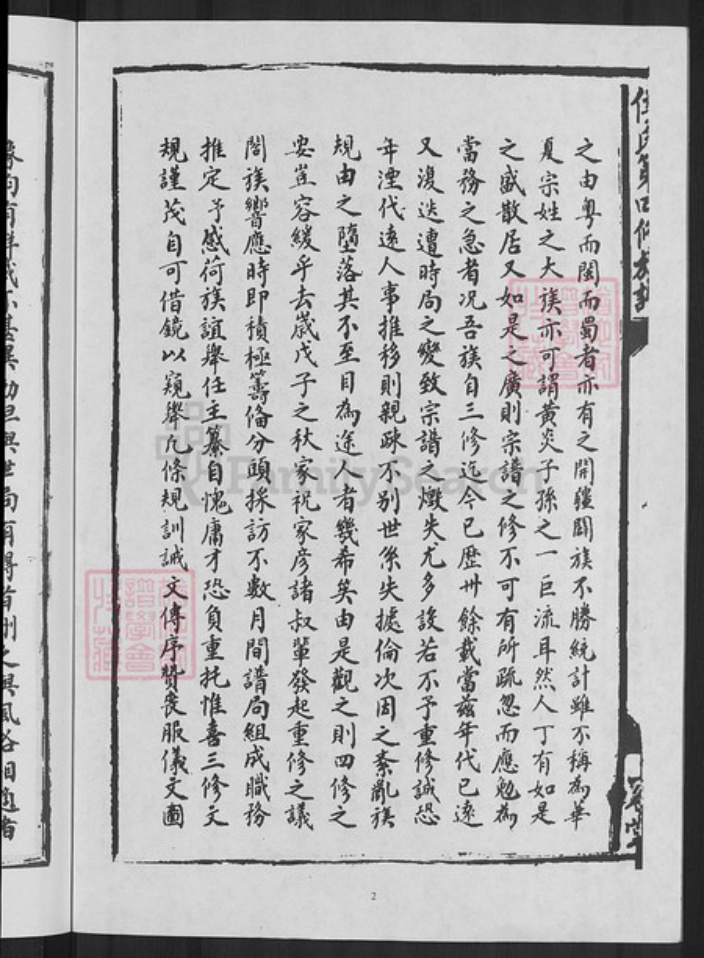 之由粵而閩而蜀者亦有之開疆闢族不勝統計雖不稱為華
夏宗姓之大族亦可謂黃炎子孫之一巨流耳然人丁有如是
之盛散居又如是之廣則宗譜之修不可有所疏忽而應勉為
當務之急者况吾族自三修迄今已歷卅餘載當茲年代已遠
又復迭遭時局之變致宗譜之燬失尤多設若不予重修誠恐
年湮代遠人事推移則親疎不別世系失據倫次因之紊亂族
規由之墮落其不至目為途人者幾希矣由是觀之則四修之
安豈容緩乎去歲戊子之秋家祝家彦諸叔輩發起重修之議
闔族響應時即積極籌備分頭採訪不數月間譜局組成職務
推定予感荷族誼舉任主纂自愧庸才恐負重托惟喜三修文
規謹茂自可借鏡以窺舉凡條規訓誡文傳序贊喪服儀文圖
2
FamilySearch